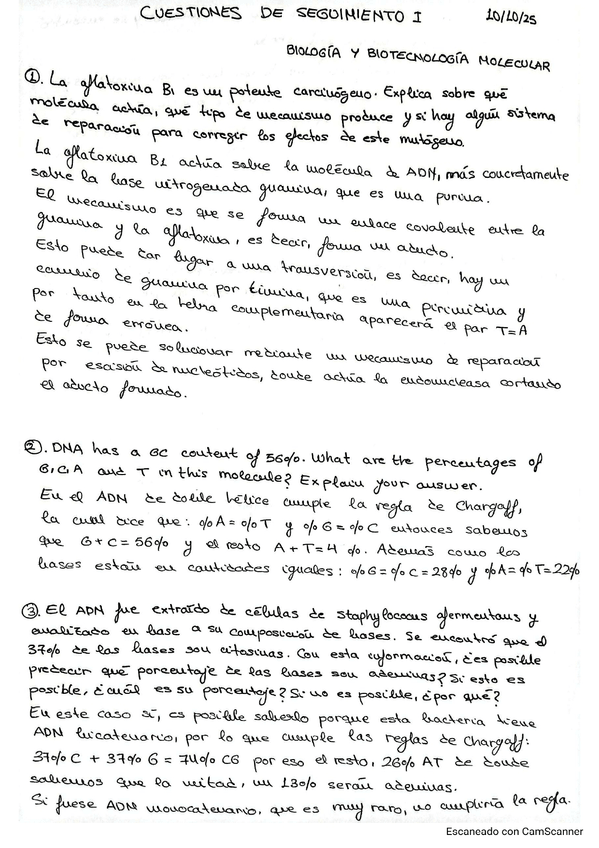 CUESTIONES DE SEGUIMIENTO I 10/10/25
BIOLOGÍA Y BIOTECNOLOGÍA MOLECULAR
①. La aflatoxina B1 es un potente carcinógeno. Explica sobre qué
molécula actúa, qué tipo de mecanismo produce y si hay algún sistema
de reparación para corregir los efectos de este mutágeno.
La aflatoxina B1 actúa sobre la molécula de ADN, más concretamente
sobre la base nitrogenada guanina, que es una purina.
El mecanismo es que se forma un enlace covalente entre la
guanina y la aflatoxina, es decir, forma un aducto.
Esto puede dar lugar a una transversión, es decir, hay un
cambio de guanina por timina, que es una pirimidina y
por tanto en la hebra complementaria aparecerá el par T=A
de forma errónea.
Esto se puede solucionar mediante un mecanismo de reparación
por escisión de nucleótidos, donde actúa la endonucleasa cortando
el aducto formado.
②. DNA has a GC content of 56%. What are the percentages of
G, C, A and T in this molecule? Explain your answer.
En el ADN de doble hélice cumple la regla de Chargaff,
la cual dice que: %A = %T y %G = %C entonces sabemos
que G+C = 56% y el resto A+T = 4 %. Además como las
bases están en cantidades iguales: %G = %C = 28% y %A = %T = 22%
③. El ADN fue extraído de células de Staphylococcus afermentans y
analizado en base a su composición de bases. Se encontró que el
37% de las bases son citosinas. Con esta información, ¿es posible
predecir qué porcentaje de las bases son adeninas? Si esto es
posible, ¿cuál es su porcentaje? Si no es posible, ¿por qué?
En este caso sí, es posible saberlo porque esta bacteria tiene
ADN bicatenario, por lo que cumple las reglas de Chargaff:
37% C + 37% G = 74% CG por eso el resto, 26% AT de donde
sabemos que la mitad, un 13% serán adeninas.
Si fuese ADN monocatenario, que es muy raro, no cumpliría la regla.
Escaneado con CamScanner